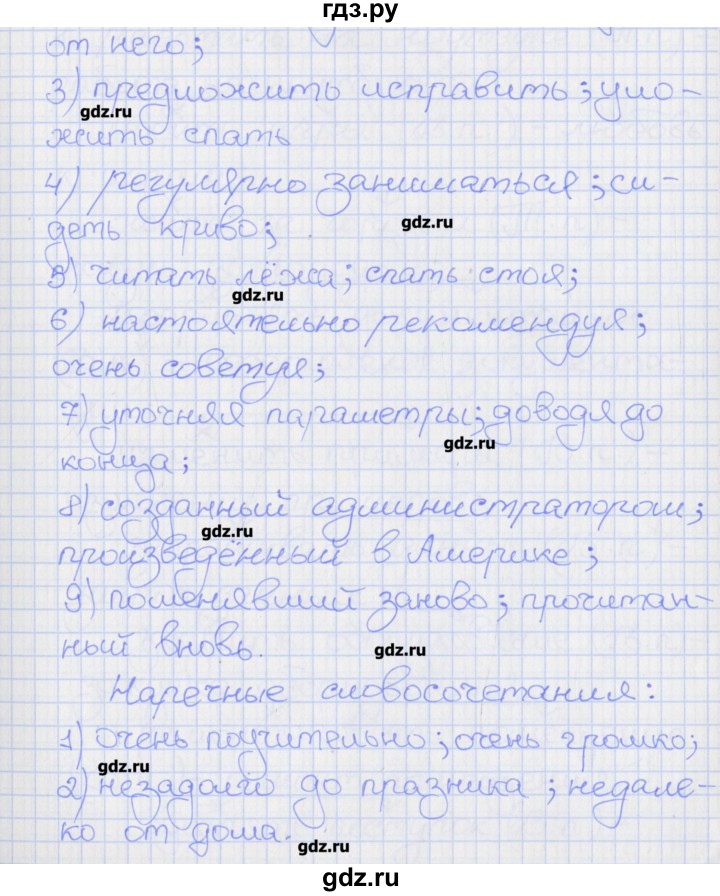 гдз.ру
от него;
3) предложить исправить; уло-
gdz.ru
жить спать
4) регулярно заниматься; си-
gdz.ru
деть криво;
5) читать лёжа; спать стоя;
gdz.ru
6) настоятельно рекомендуя;
очень советуя;
7) уточняя параметры; доводя до
gdz.ru
конца;
8) созданный администратором;
gdz.ru
произведённый в Америке;
9) поменявший заново; прочитан-
ный вновь.
gdz.ru
Наречные словосочетания:
1) очень поучительно; очень громко;
gdz.ru
2) незадолго до празника; недале-
ко от дома.
gdz.ru
gdz.ru